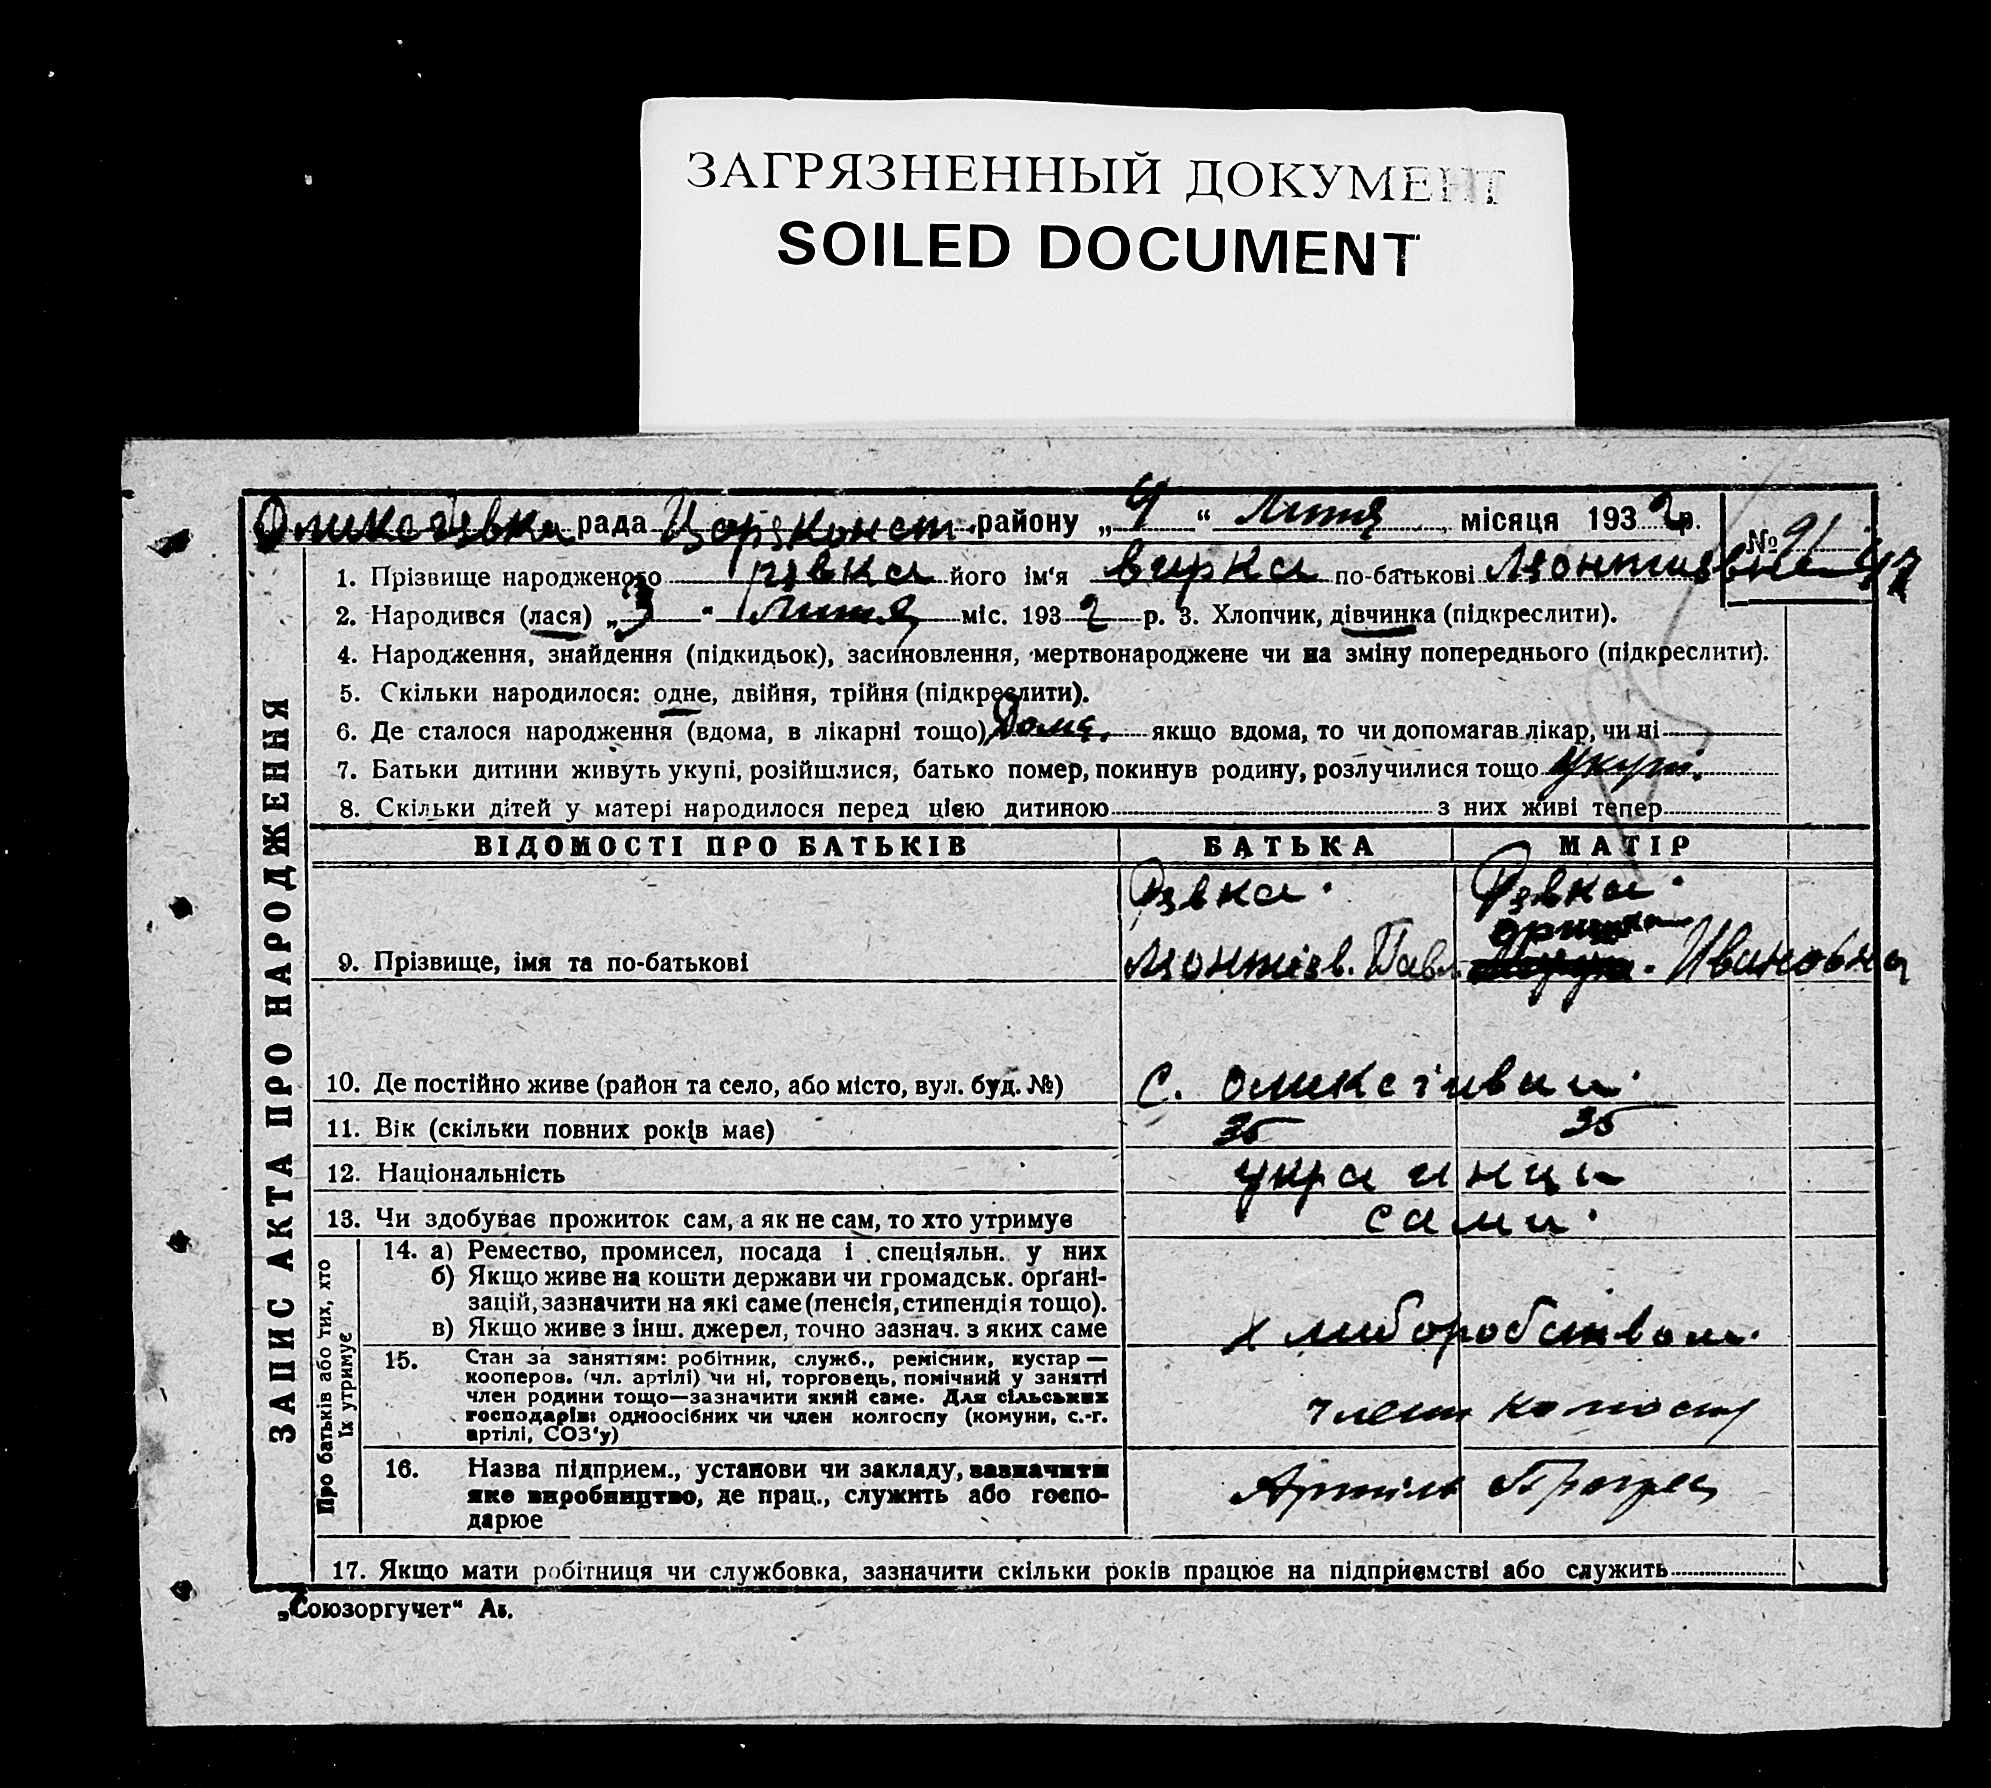 ЗАГРЯЗНЕННЫЙ ДОКУМЕНТ
SOILED DOCUMENT
ЗАПИС АКТА ПРО НАРОДЖЕННЯ
рада район у „4“ місяця 1932 р. №
1. Прізвище народженого його ім'я вирка по-батькові
2. Народився (лася) „3“ міс. 1932 р. 3. Хлопчик, дівчинка (підкреслити).
4. Народження, знайдення (підкидьок), засиновлення, мертвонароджене чи на зміну попереднього (підкреслити).
5. Скільки народилося: одне, двійня, трійня (підкреслити).
6. Де сталося народження (вдома, в лікарні тощо) Дома, якщо вдома, то чи допомагав лікар, чи ні
7. Батьки дитини живуть укупі, розійшлися, батько помер, покинув родину, розлучилися тощо укупі.
8. Скільки дітей у матері народилося перед цією дитиною з них живі тепер
ВІДОМОСТІ ПРО БАТЬКІВ БАТЬКА МАТІР
9. Прізвище, імя та по-батькові Павл. Ивановна
10. Де постійно живе (район та село, або місто, вул. буд. №) с.
11. Вік (скільки повних років має) 35 35
12. Національність украинци
13. Чи здобуває прожиток сам, а як не сам, то хто утримує сами.
Про батьків або тих, хто їх утримує
14. а) Ремество, промисел, посада і спеціяльн. у них
б) Якщо живе на кошти держави чи громадськ. орґані-
зацій, зазначити на які саме (пенсія, стипендія тощо).
в) Якщо живе з інш. джерел, точно зазнач. з яких саме хлиборобством.
15. Стан за заняттям: робітник, служб., ремісник, кустар —
кооперов. (чл. артілі) чи ні, торговець, помічний у занятті
член родини тощо—зазначити який саме. Для сільських
господарів: одноосібних чи член колгоспу (комуни, с.-г.
артілі, СОЗ'у) члени
16. Назва підприєм., установи чи закладу, зазначити
яке виробництво, де прац., служить або госпо-
дарює Артіль Прогрес
17. Якщо мати робітниця чи службовка, зазначити скільки років працює на підприємстві або служить
„Союзоргучет“